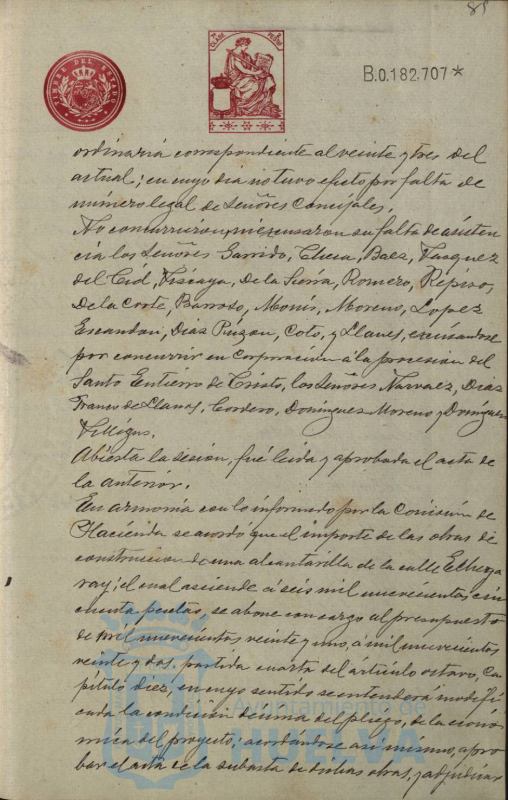 85
TIMBRE DEL ESTADO
CLASE
B.0.182.707*
ordinaria correspondiente al veinte y tres del
actual; en cuyo dia no tuvo efecto por falta de
numero legal de Señores Concejales.
No concurrieron, ni excusaron su falta de asisten
cia los Señores Garrido, Checa, Baez, Vazquez
del Cid, Vizcaya, De la Sierra, Romero, Repiso,
De la Corte, Barroso, Monís, Moreno, Lopez
Escandon, Diaz Pinzon, Coto, y Llanes, excusandose
por concurrir en Corporacion á la procesion del
Santo Entierro de Cristo, los Señores Narvaez, Diaz
Franco de Llanos, Cordero, Dominguez Moreno y Dominguez
Villegas.
Abierta la sesion, fué leida y aprobada el acta de
la anterior.
En armonia con lo informado por la Comision de
Hacienda se acordó que el importe de las obras de
construccion de una alcantarilla de la calle Echega
ray; el cual asciende á seis mil nuevecientas cin
cuenta pesetas, se abone con cargo al presupuesto
de mil nuevecientos veinte y uno, á mil nuevecientos
veinte y dos, partida cuarta del artículo octavo, Ca
pítulo diez, en cuyo sentido se entenderá modifi
cada la condicion decima del pliego, de la econo
mica del proyecto; acordándose asi mismo, apro
bar el acta de la subasta de dichas obras, y adjudicar
Ayuntamiento de
HUELVA